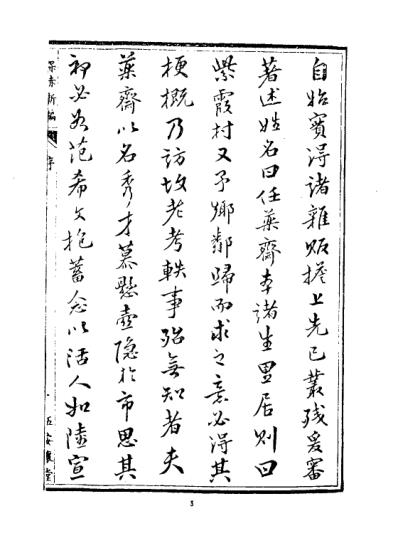 自始賓得諸雜販擔上先已叢殘爰審
著述姓名曰任藥齋本諸生里居則曰
紫霞村又予鄉鄰歸而求之意必得其
梗概乃訪故老考軼事殆無知者夫
藥齋以名秀才慕懸壺隱於市思其
初必若范希文抱蓄念以活人如陸宣
保赤新編 序
3